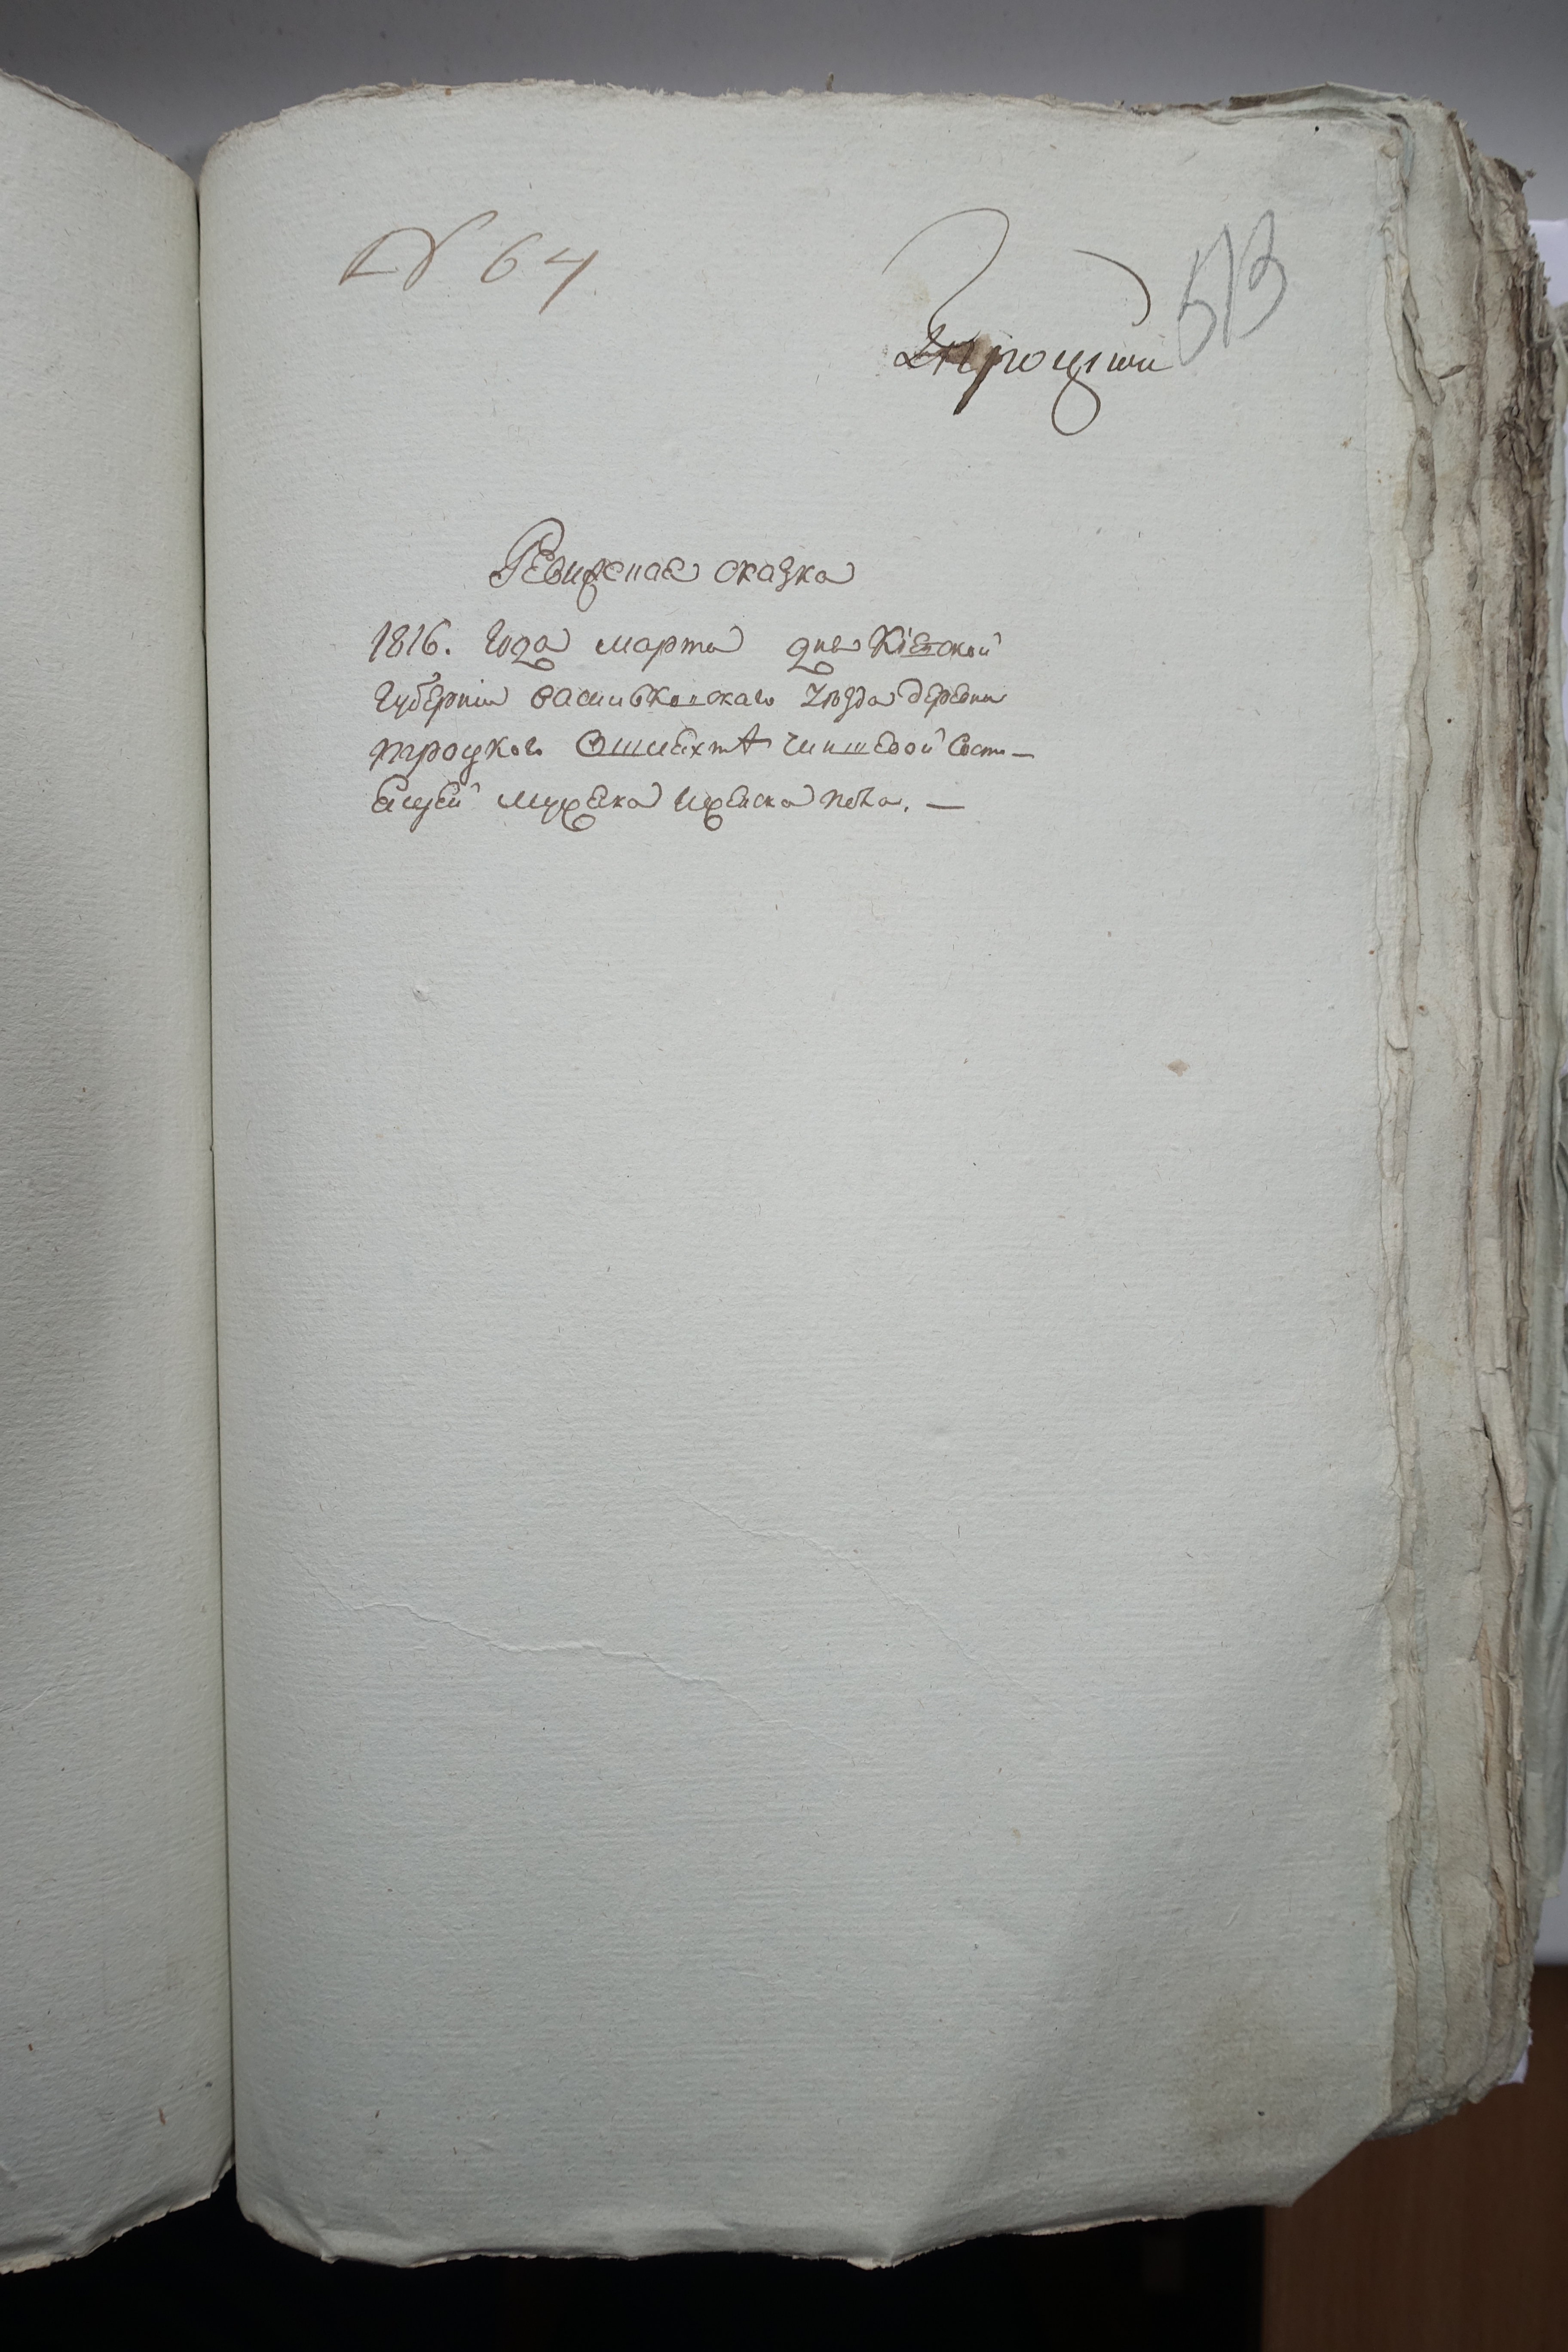 № 64
513
Троцкии
Ревизская сказка
1816. Года марта дня Кіевской
Губерніи васильковскаго Уезда деревни
троцкого О шляхтѣ чиншевой Состо—
ящей мужеска Иженска пола. —